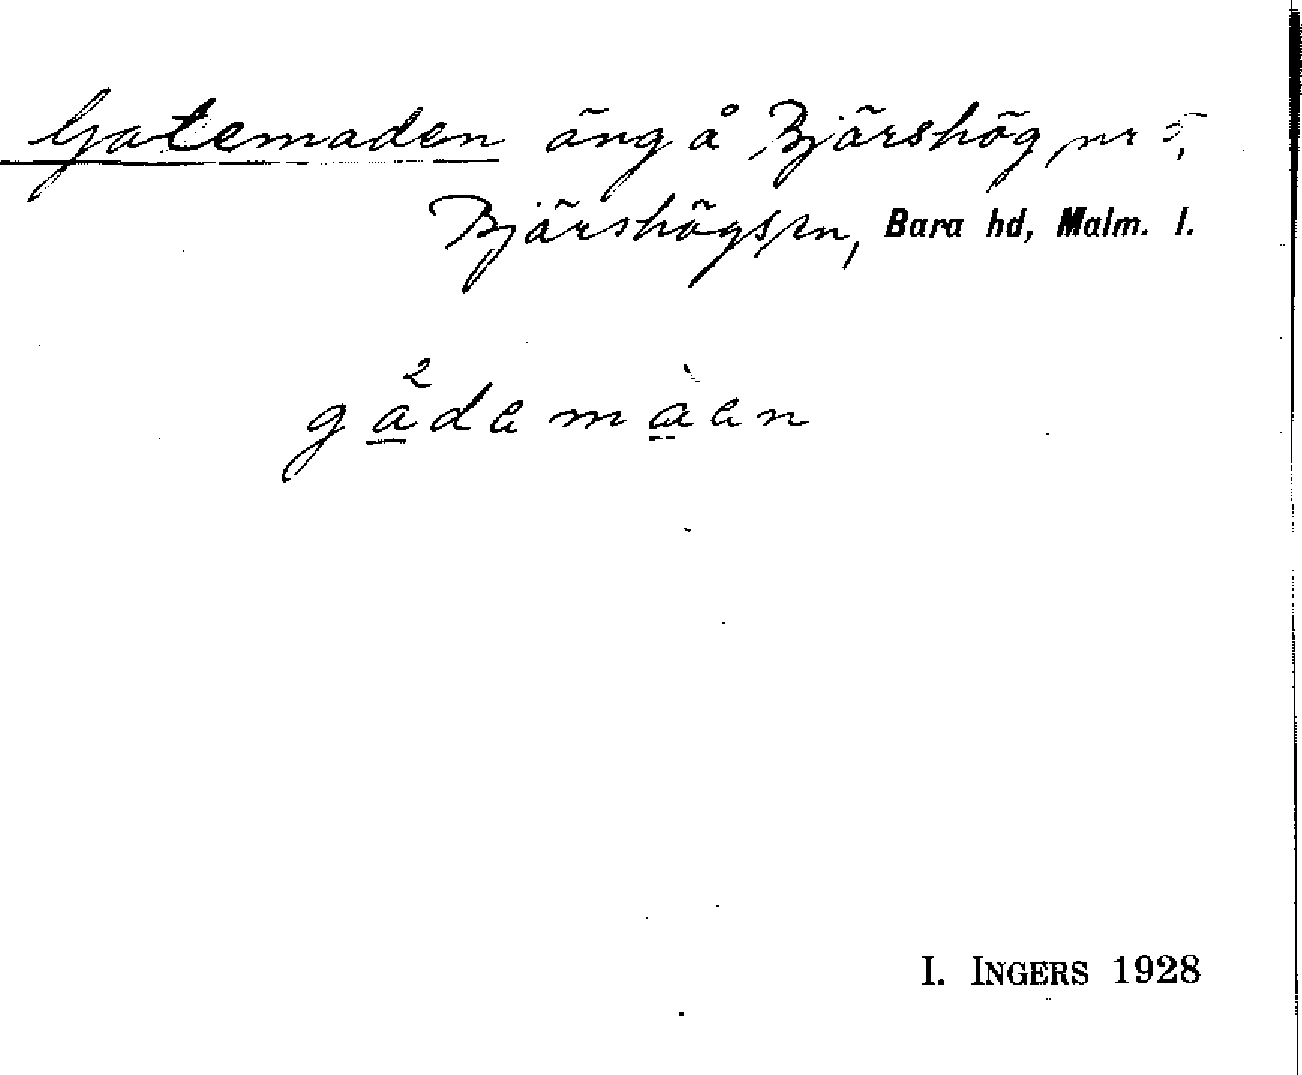 Gatemaden äng å Bjärshög nr 5,
Bjärshögs sn, Bara hd, Malm. l.
gå²demàen
I. INGERS 1928